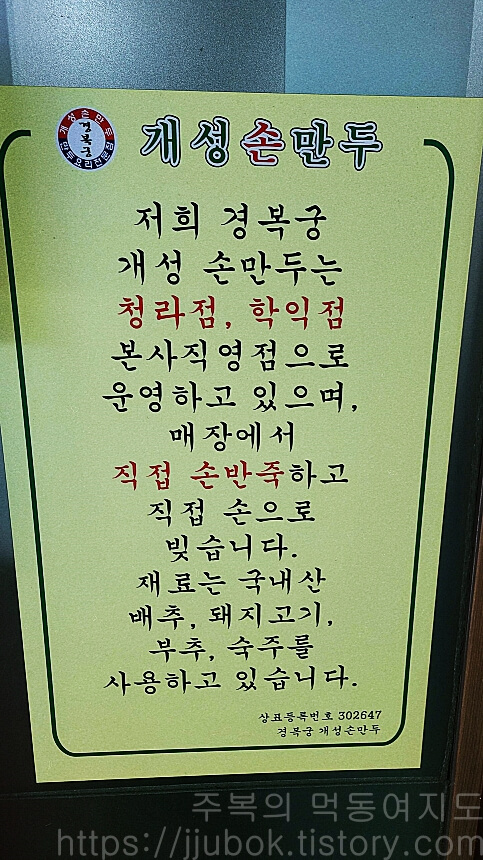 개성손만두
경복궁
만두요리전문점
개성손만두
저희 경복궁
개성 손만두는
청라점, 학익점
본사직영점으로
운영하고 있으며,
매장에서
직접 손반죽하고
직접 손으로
빚습니다.
재료는 국내산
배추, 돼지고기,
부추, 숙주를
사용하고 있습니다.
상표등록번호 302647
경복궁 개성손만두
주복의 먹동여지도
https://jjubok.tistory.com